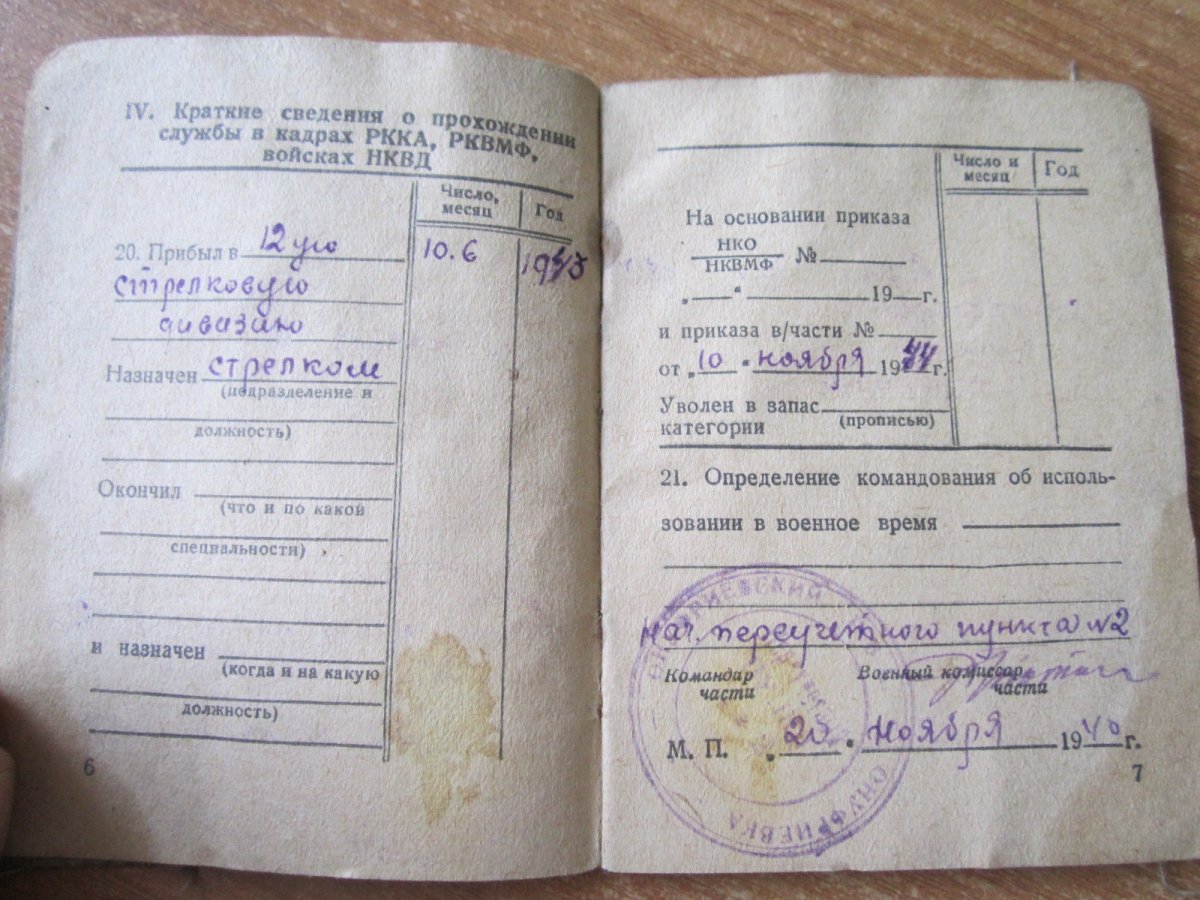 IV. Краткие сведения о прохождении
службы в кадрах РККА, РКВМФ,
войсках НКВД
Число,
месяц
Год
20. Прибыл в 12ую
10.6
стрелковую
дивазию
Назначен стрелком
(подразделение и
должность)
Окончил
(что и по какой
специальности)
и назначен
(когда и на какую
должность)
6
Число и
месяц
Год
На основании приказа
НКО
НКВМФ
№
„ “ 19 г.
и приказа в/части №
от „10“ ноября 1944 г.
Уволен в запас
категории
(прописью)
21. Определение командования об исполь-
зовании в военное время
нач. переучетного пункта №2
Командир
части
Военный комиссар
части
М. П. „20“ ноября 1940 г.
7
ОНУФРИЕВСКИЙ
ОНУФРИЕВКА